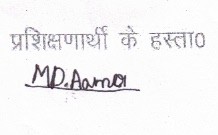 प्रशिक्षणार्थी के हस्ता०
MD.Aamor